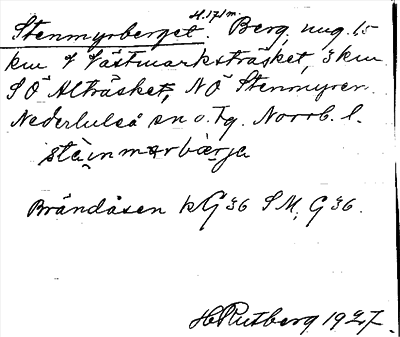 H. 171 m.
Stenmyrberget. Berg, nug. 1,5
km S Västmarksträsket, 3 km
SÖ Alträsket, NÖ Stenmyren
Nederluleå sn o. Tg. Norrb. l.
stainmørbærja
Brändåsen kG 36 SM, G 36.
H Rutberg 1927.